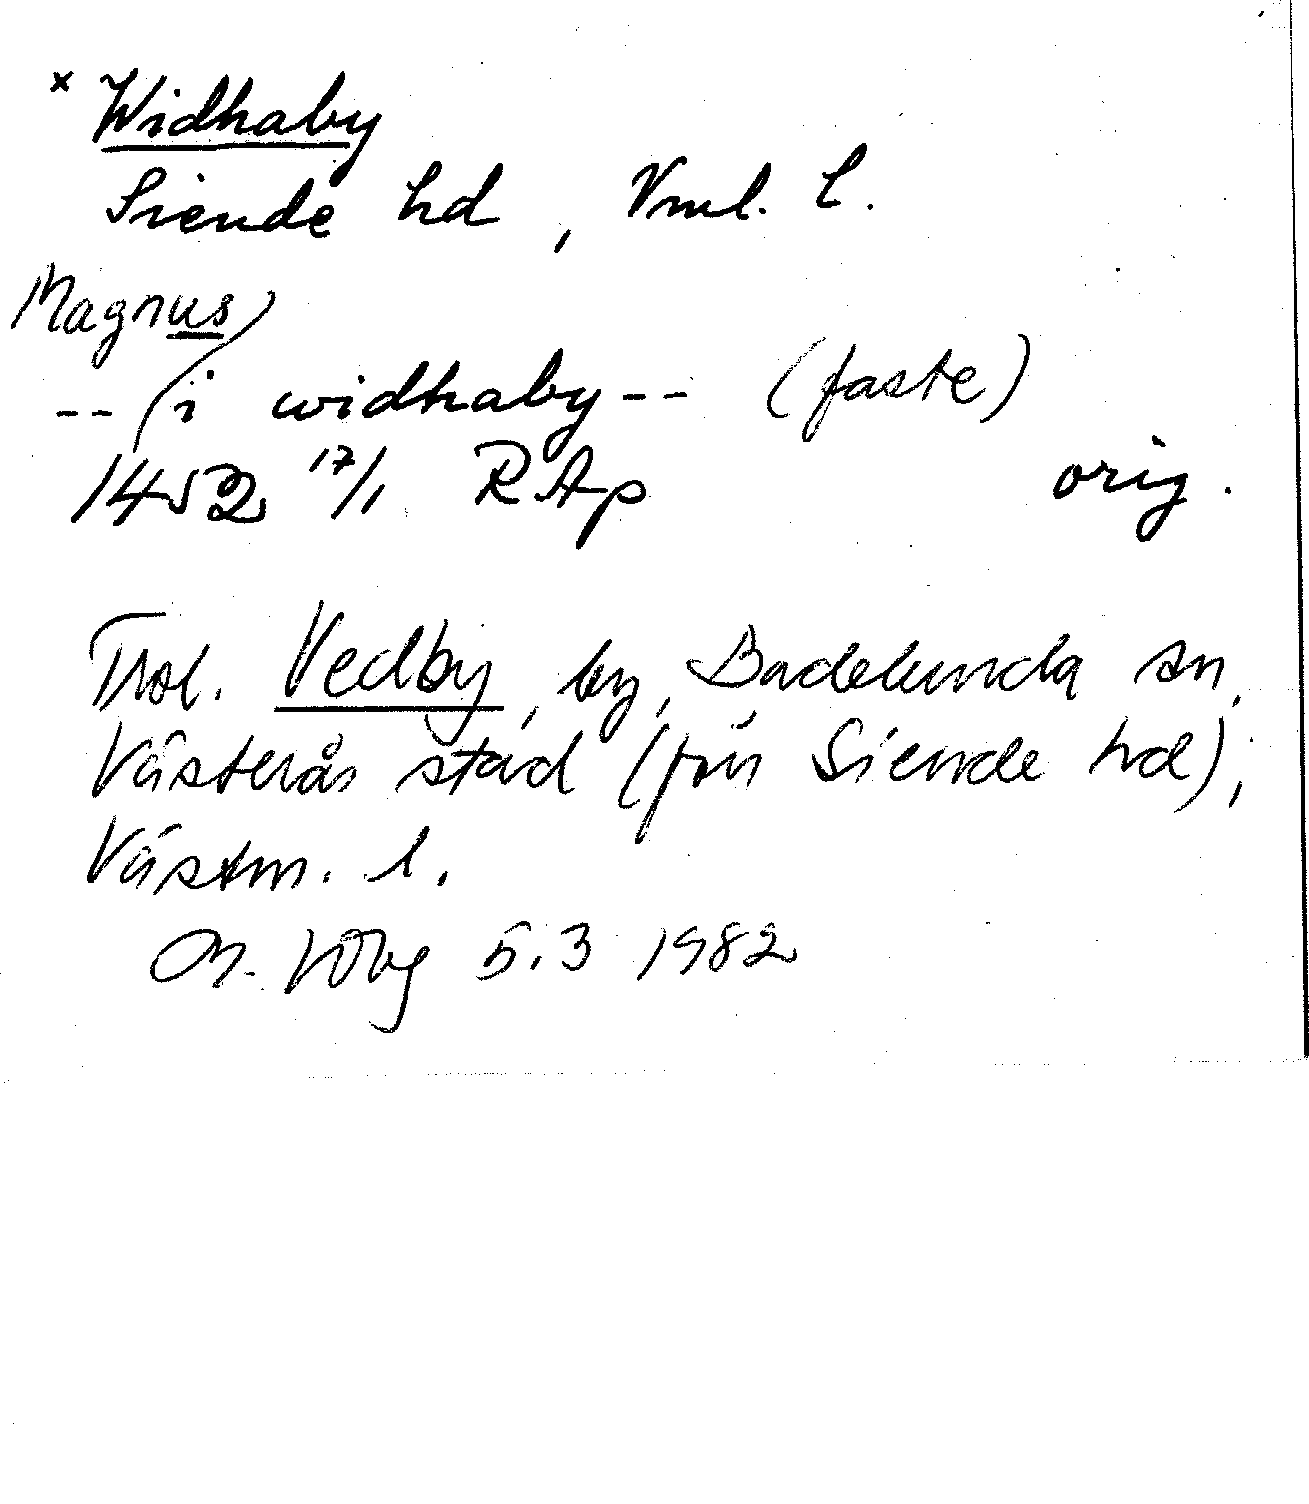 x Widhaby
Siende hd, Vml. l.
Magnus
-- i widhaby -- (faste)
1452 17/1 RAp orig.
Trol. Vedby, by, Badelunda sn,
Västerås stad (förr Siende hd),
Västm. l.
5.3 1982